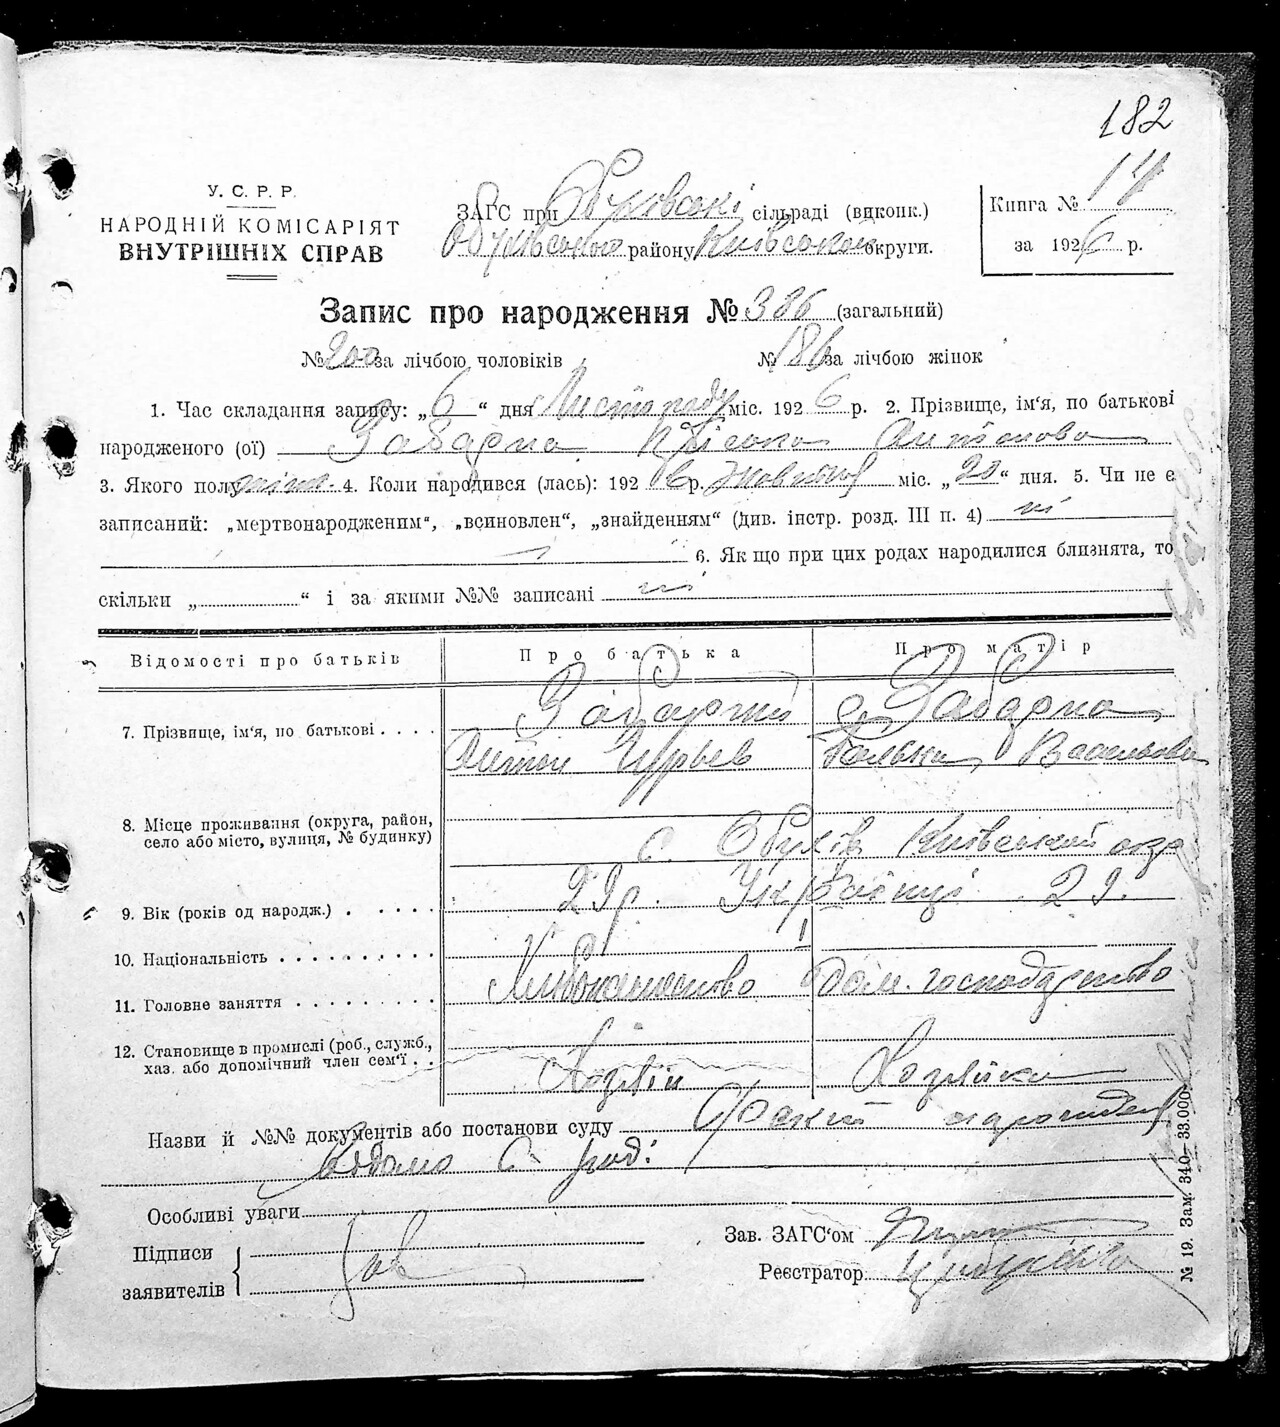 182
У. С. Р. Р.
НАРОДНІЙ КОМІСАРІЯТ
ВНУТРІШНІХ СПРАВ
ЗАГС при Обухівські сільраді (виконк.)
Обухівського району Київської округи.
Книга № 14
за 1926 р.
Запис про народження № 386 (загальний)
№ 200 за лічбою чоловіків № 186 за лічбою жінок
1. Час складання запису: „6“ дня Листопаду міс. 1926 р. 2. Прізвище, ім'я, по батькові
народженого (ої) Забарна Антонова
3. Якого полу жін. 4. Коли народився (лась): 1926 р. Жовтня міс. „20“ дня. 5. Чи не є
записаний: „мертвонародженим“, „всиновлен“, „знайденням“ (див. інстр. розд. III п. 4) ні
6. Як що при цих родах народилися близнята, то
скільки „ “ і за якими №№ записані ні
Відомості про батьків Про батька Про матір
7. Прізвище, ім'я, по батькові . . . . Забарний Забарна
Антон Гурьев Галька Васильова
8. Місце проживання (округа, район,
село або місто, вулиця, № будинку) с. Обухів Київський окр
9. Вік (років од народж.) . . . . . 29р. Українці 29.
10. Національність . . . . . . . . . .
11. Головне заняття . . . . . . . . . Хлібопашество Дом. господарство
12. Становище в промислі (роб., служб.,
хаз. або допомічний член сем'ї . . Хозяін Хозяйка
Назви й №№ документів або постанови суду
С. раді
Особливі уваги
Підписи
заявителів Заб
Зав. ЗАГС'ом
Реєстратор
№ 19. Зам. 340—33.000